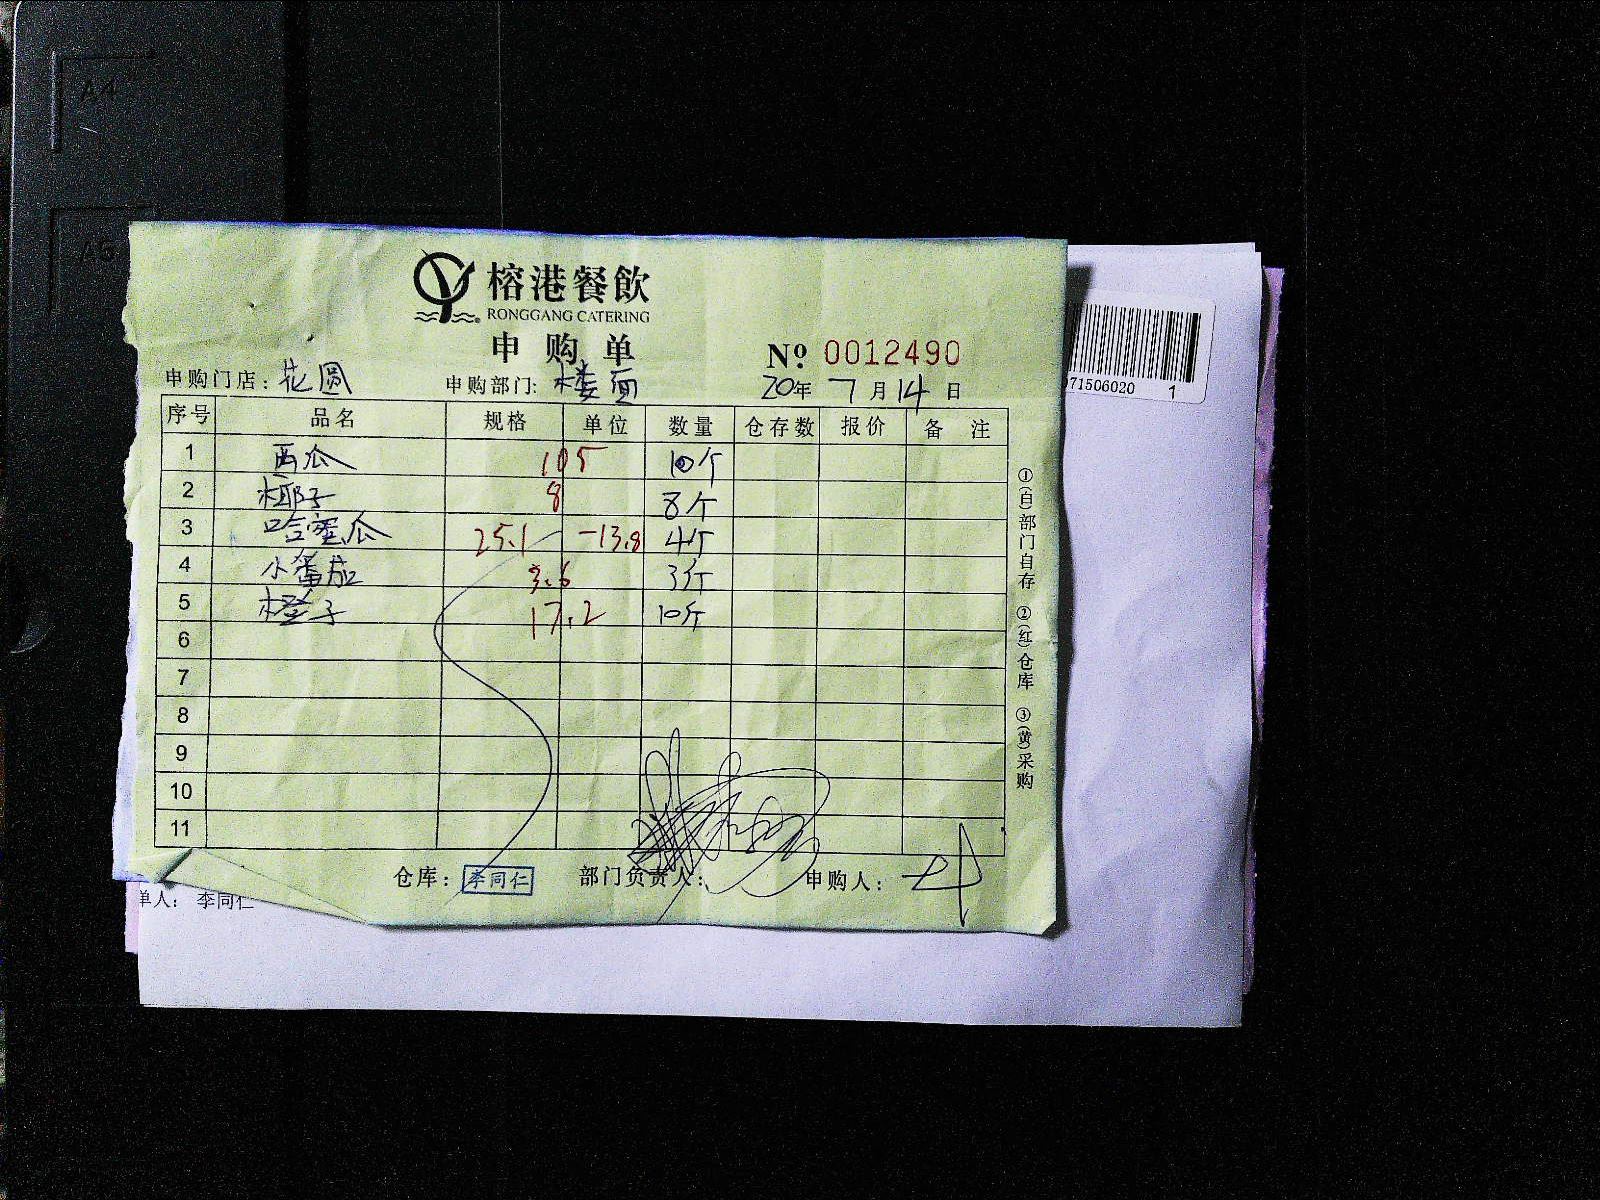 A4
A5
榕港餐飲
RONGGANG CATERING
申购单
Nº 0012490
071506020 1
申购门店：花圆 申购部门：楼面 20年7月14日
序号 品名 规格 单位 数量 仓存数 报价 备 注
1 西瓜 105 10个
2 椰子 8 8个
3 哈蜜瓜 25.1 -13.8 4个
4 小番茄 3.6 3斤
5 橙子 17.2 10斤
6
7
8
9
10
11
①(白)部门自存 ②(红)仓库 ③(黄)采购
仓库：李同仁 部门负责人： 申购人：
单人： 李同仁